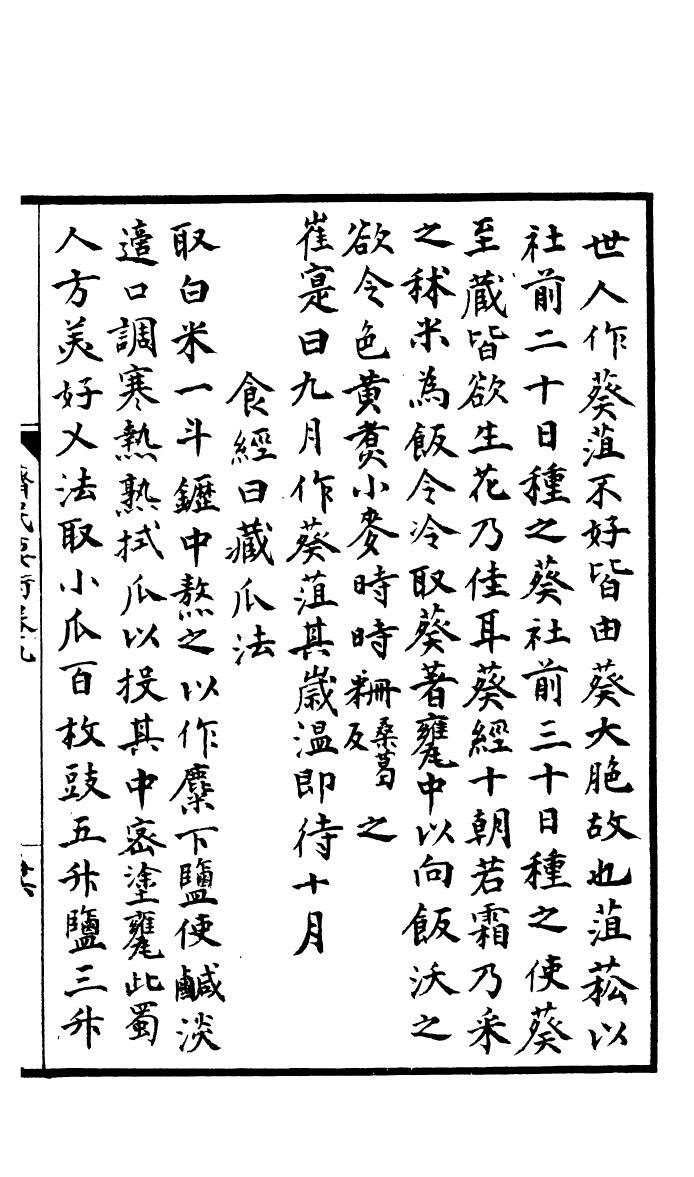 世人作葵菹不好皆由葵大脃故也菹菘以
社前二十日種之葵社前三十日種之使葵
至蔵皆欲生花乃佳耳葵經十朝若霜乃采
之秫米為飯令冷取葵著甕中以向飯沃之
欲令色黄煑小麥時時粣桑葛反之
崔寔曰九月作葵菹其歳温即待十月
食經曰藏瓜法
取白米一斗鑩中熬之以作麋下鹽使鹹淡
適口調寒熱熟拭瓜以投其中宻塗甕此蜀
人方美好又法取小瓜百枚豉五升鹽三升
齊民要術卷九